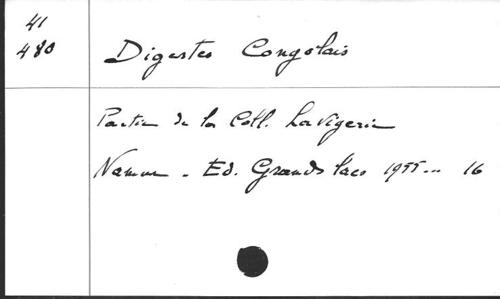 41
480
Digestes Congolais
Partie de la Coll. Lavigerie
Namur - Ed. Grands lacs 1955... 16